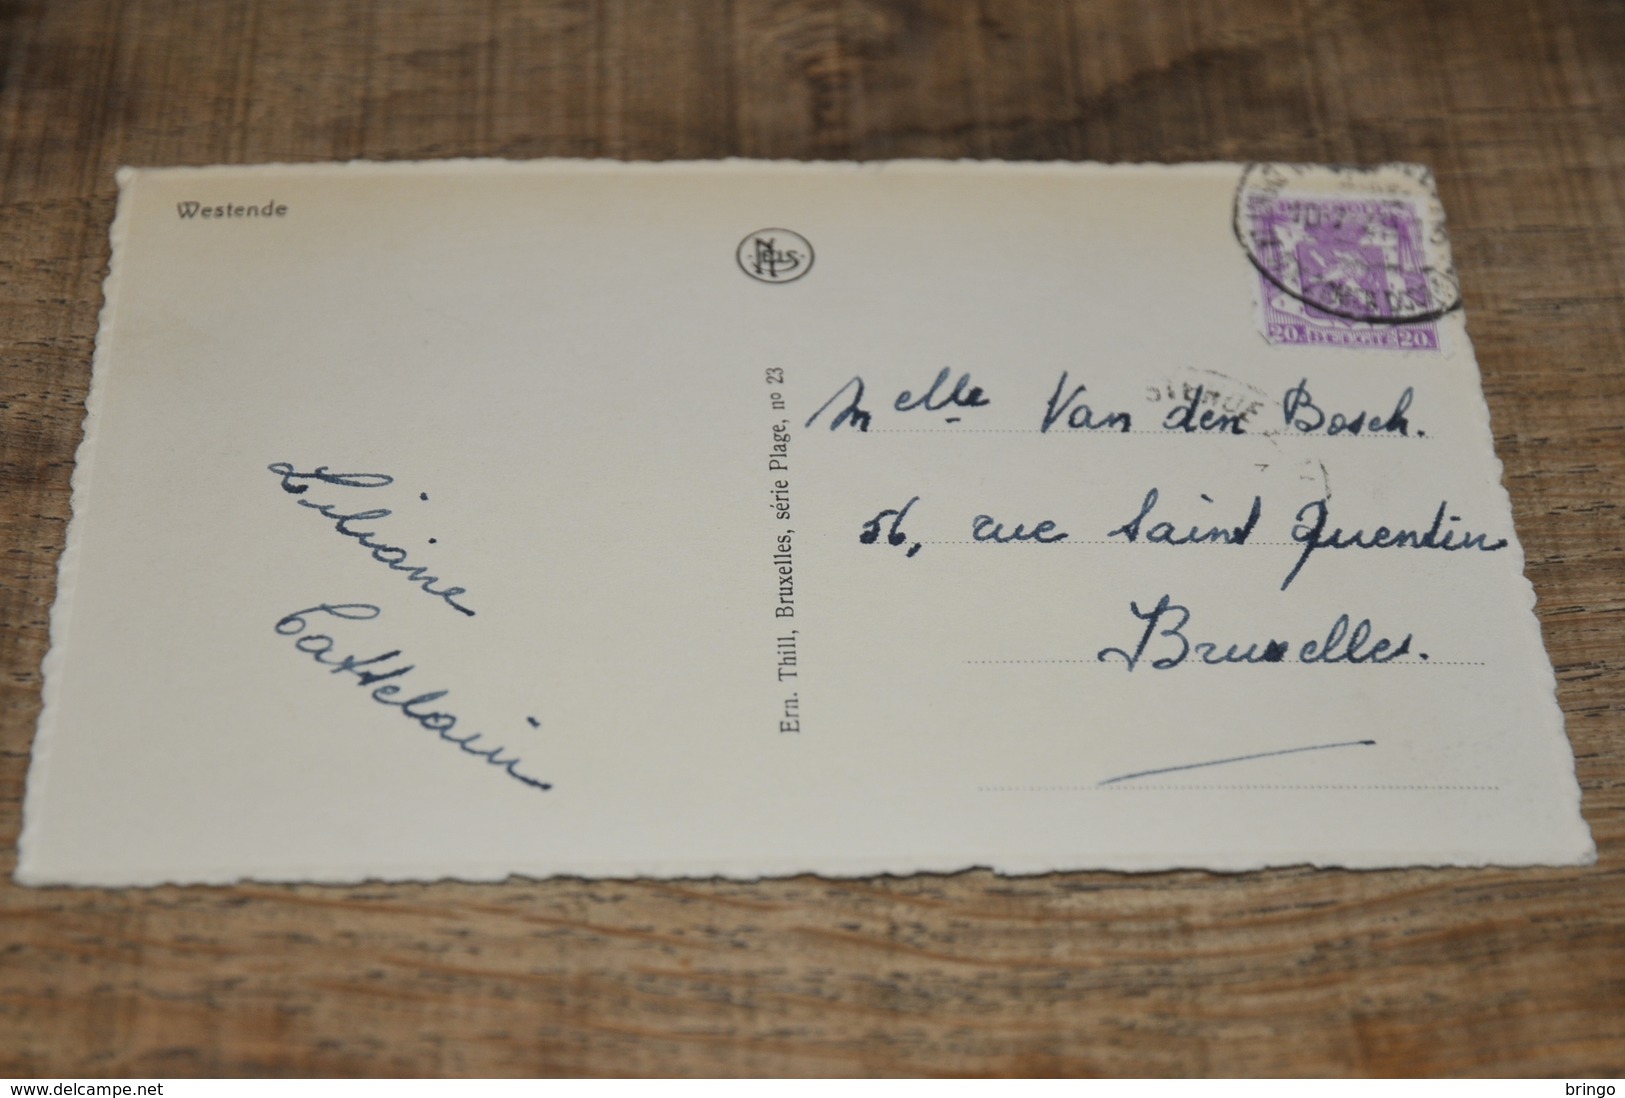 Westende
NELS
Ern. Thill, Bruxelles, série Plage, nº 23
20. BELGIË 20.
Melle Van den Bosch.
56, rue Saint Quentin
Bruxelles.
Liliane
Cattelain
www.delcampe.net
bringo